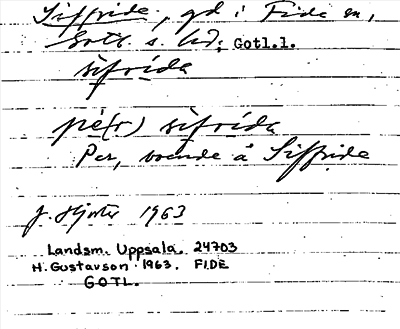 Siffride, gd i Fide sn,
Gotl. s. hd; Gotl.l.
sifrida
pè(r) sifrida
Per, boende å Siffride
J. Hjorter 1963
Landsm. Uppsala. 24703
H. Gustavson. 1963. FIDE
GOTL.